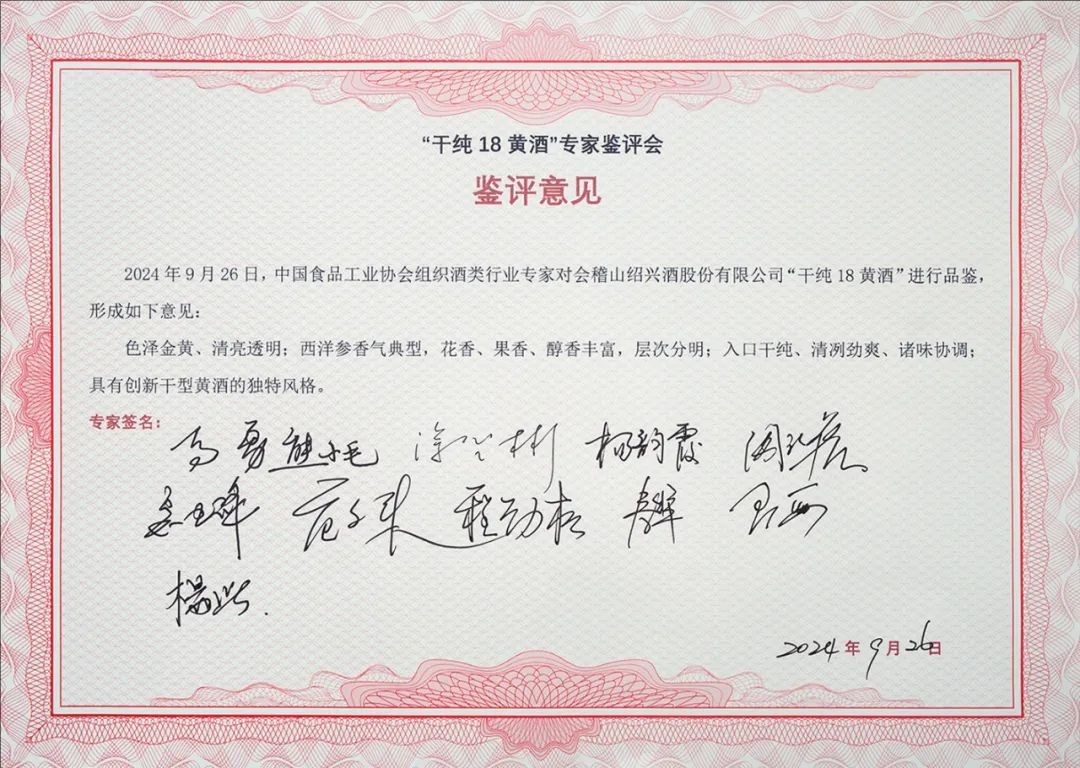 “干纯 18 黄酒”专家鉴评会
鉴评意见
2024 年 9 月 26 日，中国食品工业协会组织酒类行业专家对会稽山绍兴酒股份有限公司“干纯 18 黄酒”进行品鉴，
形成如下意见：
色泽金黄、清亮透明；西洋参香气典型，花香、果香、醇香丰富，层次分明；入口干纯、清冽劲爽、诸味协调；
具有创新干型黄酒的独特风格。
专家签名：
高勇 熊小毛 杨韵霞
程劲松
2024 年 9 月 26 日